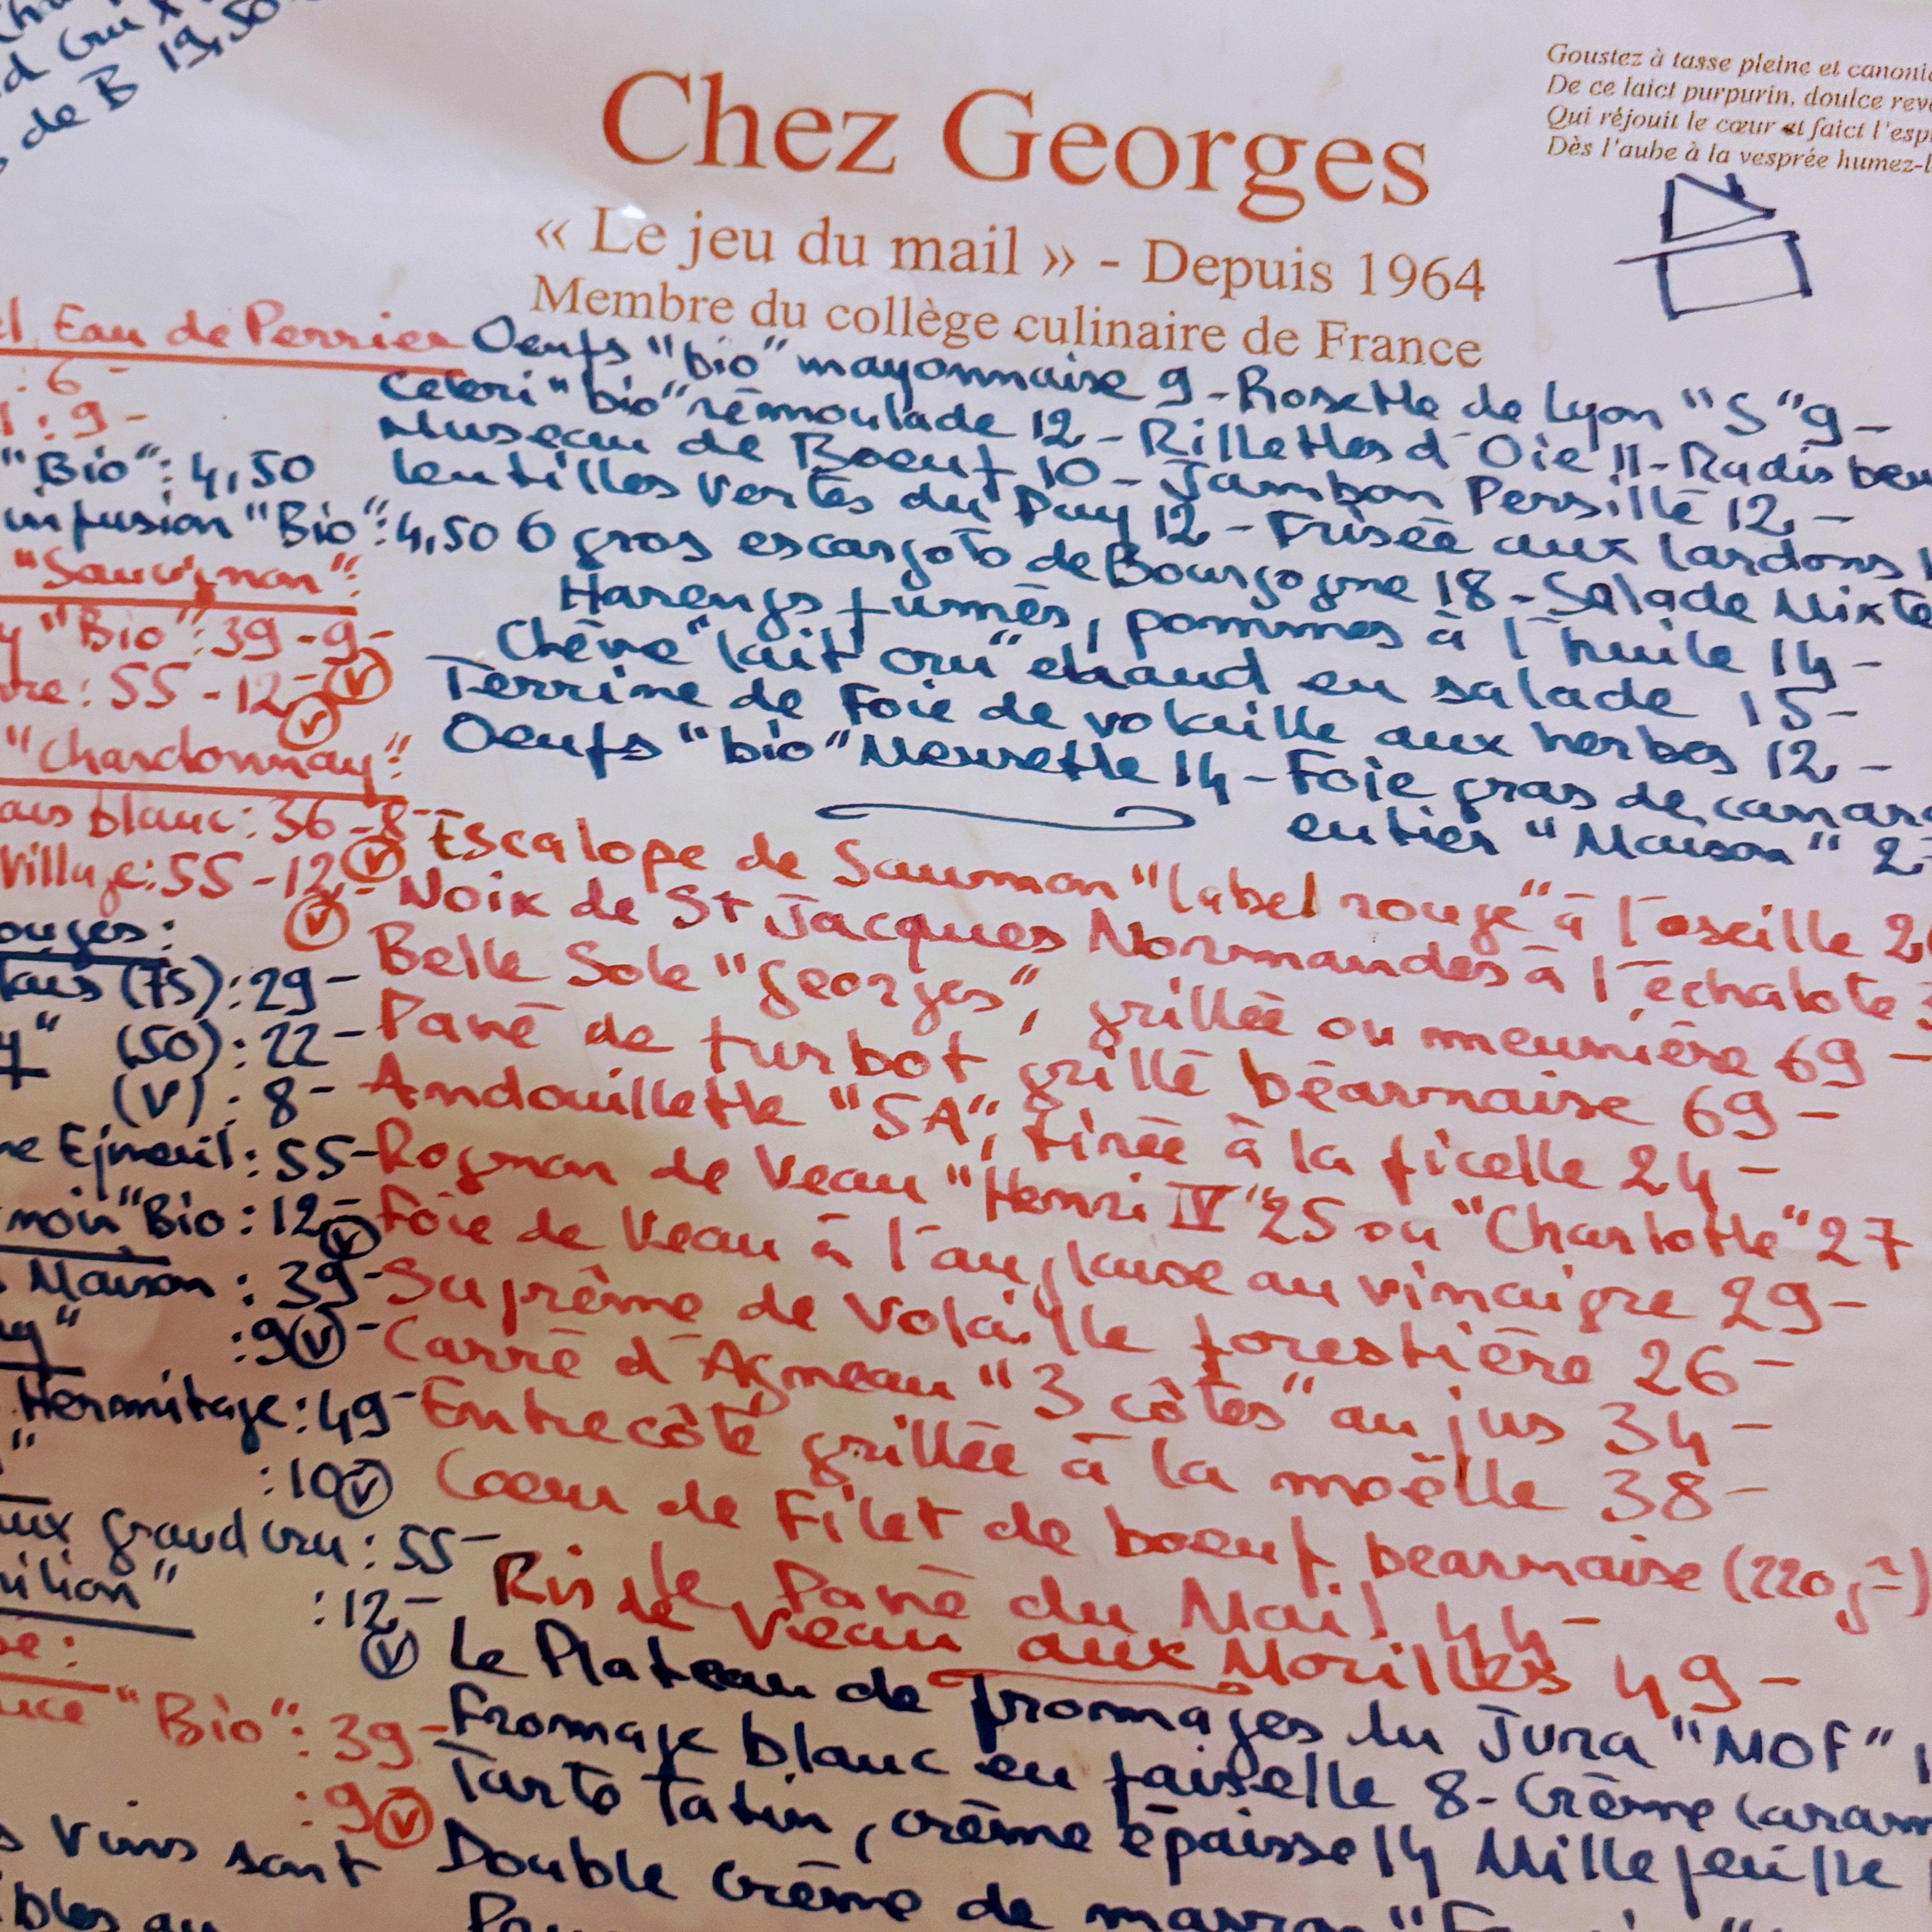 d Cru
de B 19,50
Chez Georges
« Le jeu du mail » - Depuis 1964
Membre du collège culinaire de France
Goustez à tasse pleine et
De ce laict purpurin, doulce
Qui réjouit le cœur et faict
Dès l'aube à la vesprée
Eau de Perrier
: 6 -
: 9 -
"Bio": 4,50
infusion "Bio": 4,50
"Sauvignon":
"Bio": 39 - 9 -
: 55 - 12 - V
V
"Chardonnay":
blanc: 36 - 8 -
Village: 55 - 12 - V
V
(75): 29 -
(50): 22 -
(V): 8 -
: 55 -
"Bio: 12 - V
Maison : 39 -
: 9 V -
Hermitage: 49 -
: 10 V
grand cru: 55 -
: 12 -
V
"Bio": 39 -
: 9 V
vins sont
au
Oeufs "bio" mayonnaise 9 - Rosette de Lyon "S" 9 -
Celeri "bio" rémoulade 12 - Rillettes d'Oie 11 - Radis
Museau de Boeuf 10 - Jambon Persillé 12 -
lentilles vertes du Puy 12 - Frisée aux lardons
6 gros escargots de Bourgogne 18 - Salade Mixte
Harengs fumés, pommes à l'huile 14 -
Chèvre "lait cru" chaud en salade 15 -
Terrine de Foie de volaille aux herbes 12 -
Oeufs "bio" Meurette 14 - Foie gras de canard
entier "Maison"
Escalope de Saumon "label rouge" à l'oseille
Noix de St Jacques Normandes à l'échalote
Belle Sole "georges", grillée ou meunière 69 -
Pavé de turbot grillé béarnaise 69 -
Andouillette "5A", tirée à la ficelle 24 -
Rognon de Veau "Henri IV" 25 ou "Charlotte" 27
Foie de Veau à l'anglaise au vinaigre 29 -
Suprême de Volaille forestière 26 -
Carré d'Agneau "3 côtes" au jus 34 -
Entrecôte grillée à la moëlle 38 -
Coeur de Filet de boeuf bearnaise (220 gr)
le Pavé du Mail 44 -
Ris de Veau aux Morilles 49 -
Le Plateau de fromages du Jura "MOF"
Fromage blanc en faisselle 8 - Crème
Tarte tatin, crème épaisse 14 Mille feuille
Double crème de marron